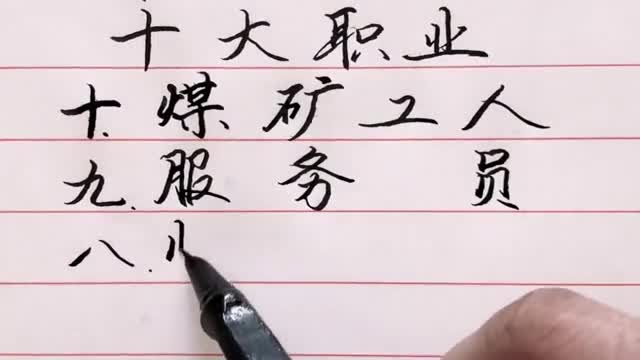 十大职业
十.煤矿工人
九.服务员
八.